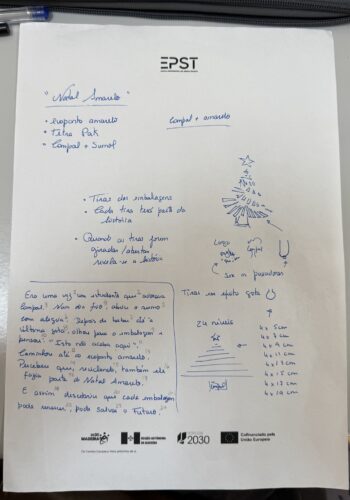 EPST
" Natal Amarelo "
• ecoponto amarelo
• Tetra Pak
• Compal + Sumol
Compal + amarelo
• Tiras das embalagens
• Cada tira terá parte da história
• Quando as tiras forem
giradas/abertas
revela-se a história
Era uma vez um estudante que adorava
Compal. Num dia frio, abriu o sumo
com alegria. Depois de beber até à
última gota, olhou para a embalagem e
pensou: " Isto não acaba aqui".
Caminhou até ao ecoponto amarelo.
Percebeu que, reciclando, também ele
fazia parte do Natal Amarelo.
E assim descobriu que cada embalagem
pode renascer, pode salvar o futuro.
Compal
Tiras em efeito gota
24 níveis
4x 5 cm
4x 7 cm
4x 9 cm
4x 11 cm
4x 13 cm
4x 15 cm
4x 17 cm
4x 19 cm
Compal
MADEIRA
REGIÃO AUTÓNOMA
DA MADEIRA
2030
Cofinanciado pela
União Europeia